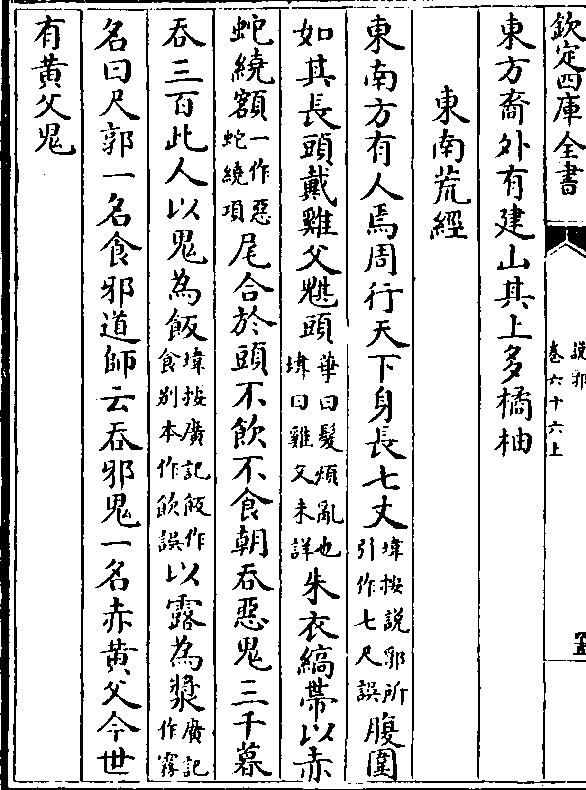 欽定四庫全書
說郛
卷六十六上
五
東方裔外有建山其上多橘柚
東南荒經
東南方有人焉周行天下身長七丈瑋按說郛所引作七尺誤腹圍
如其長頭戴雞父魌頭華曰髮煩亂也瑋曰雞父未詳朱衣縞帶以赤
蛇繞額一作惡蛇繞項尾合於頭不飲不食朝吞惡鬼三千暮
吞三百此人以鬼為飯瑋按廣記飯作食別本作飲誤以露為漿廣記作霧
名曰尺郭一名食邪道師云吞邪鬼一名赤黄父今世
有黄父鬼